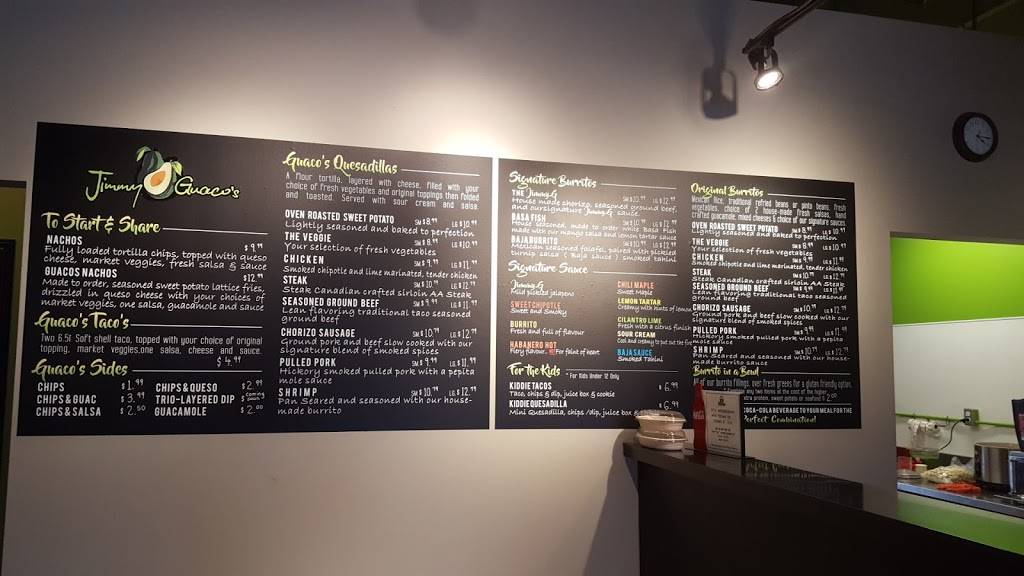 Jimmy Guaco's
To Start & Share
NACHOS $9.99
Fully loaded tortilla chips, topped with queso
cheese, market veggies, fresh salsa & sauce
GUACOS NACHOS $12.99
Made to order, seasoned sweet potato lattice fries,
drizzled in queso cheese with your choices of
market veggies, one salsa, guacamole and sauce
Guaco's Taco's
Two 6.5" Soft shell taco, topped with your choice of original
topping, market veggies, one salsa, cheese and sauce.
$4.99
Guaco's Sides
CHIPS $1.99 CHIPS & QUESO $2.99
CHIPS & GUAC $3.99 TRIO-LAYERED DIP $ coming soon
CHIPS & SALSA $2.50 GUACAMOLE $2.00
Guaco's Quesadillas
A flour tortilla, layered with cheese, filled with your
choice of fresh vegetables and original toppings then folded
and toasted. Served with sour cream and salsa.
OVEN ROASTED SWEET POTATO SM $8.99 LG $10.99
Lightly seasoned and baked to perfection
THE VEGGIE SM $8.99 LG $10.99
Your selection of fresh vegetables
CHICKEN SM $9.99 LG $11.99
Smoked chipotle and lime marinated, tender chicken
STEAK SM $10.99 LG $12.99
Steak Canadian crafted sirloin AA Steak
SEASONED GROUND BEEF SM $9.99 LG $11.99
Lean flavoring traditional taco seasoned
ground beef
CHORIZO SAUSAGE SM $10.79 LG $12.79
Ground pork and beef slow cooked with our
signature blend of smoked spices
PULLED PORK SM $9.99 LG $11.99
Hickory smoked pulled pork with a pepita
mole sauce
SHRIMP SM $10.79 LG $12.79
Pan Seared and seasoned with our house-
made burrito
Signature Burritos
THE Jimmy G SM $10.99 LG $12.99
House made chorizo, seasoned ground beef,
and our signature Jimmy G sauce.
BASA FISH
House seasoned, made to order white Basa Fish
made with our mango salsa and lemon tartar sauce
BAJA BURRITO
Mexican seasoned falafel, spiced with pickled
turnip salsa ( Baja sauce ) smoked tahini
Signature Sauce
Jimmy G
Mild pickled jalapeno
SWEET CHIPOTLE
Sweet and Smoky
BURRITO
Fresh and full of flavour
HABANERO HOT
Fiery flavour. Not for faint of heart
CHILI MAPLE
Sweet Maple
LEMON TARTAR
Creamy with hints of lemon
CILANTRO LIME
Fresh with a citrus finish
SOUR CREAM
Cool and creamy to put out the fire
BAJA SAUCE
Smoked Tahini
For the Kids * For Kids Under 12 Only
KIDDIE TACOS $6.99
Taco, chips & dip, juice box & cookie
KIDDIE QUESADILLA $6.99
Mini Quesadilla, chips /dip, juice box &
Original Burritos
Mexican Rice, traditional refried beans or pinto beans, fresh
vegetables, choice of 2 house-made fresh salsas, hand
crafted guacamole, mixed cheeses & choice of our signature sauces
OVEN ROASTED SWEET POTATO SM $8.99 LG $10.99
Lightly seasoned and baked to perfection
THE VEGGIE
Your selection of fresh vegetables
CHICKEN
Smoked chipotle and lime marinated, tender chicken
STEAK
Steak Canadian crafted sirloin AA Steak
SEASONED GROUND BEEF
Lean flavoring traditional taco seasoned
ground beef
CHORIZO SAUSAGE
Ground pork and beef slow cooked with our
signature blend of smoked spices
PULLED PORK
Hickory smoked pulled pork with a pepita
mole sauce
SHRIMP
Pan Seared and seasoned with our house-
made burrito sauce
Burrito in a Bowl
All of our burrito fillings, over fresh greens for a gluten friendly option.
protein, sweet potato or seafood $2.00
COCA-COLA BEVERAGE TO YOUR MEAL FOR THE
Perfect Combination!